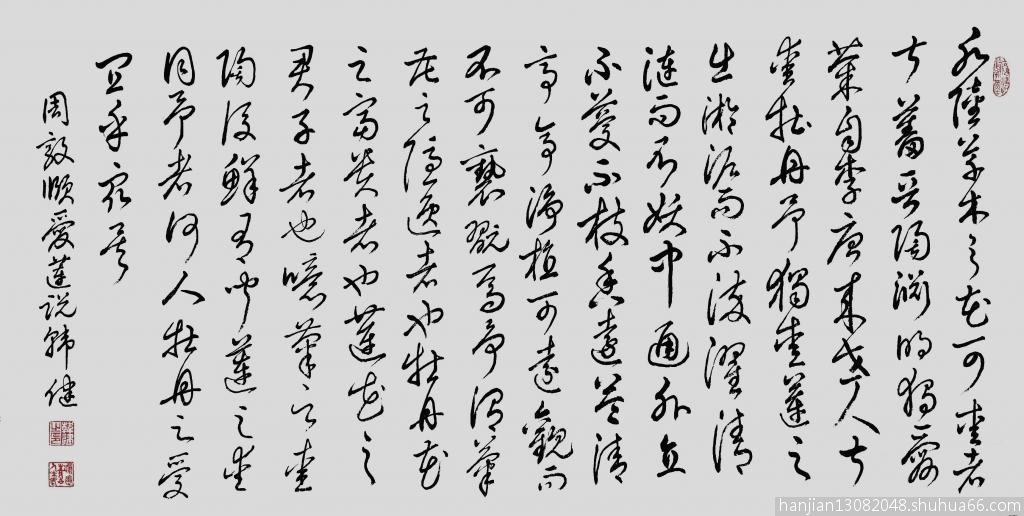 水陸草木之花可愛者
甚蕃晋陶淵明獨愛
菊自李唐来世人甚
愛牡丹予獨愛蓮之
出淤泥而不染濯清
漣而不妖中通外直
不蔓不枝香遠益清
亭亭净植可遠觀而
不可褻翫焉予謂菊
花之隱逸者也牡丹花
之富貴者也蓮花之
君子者也噫菊之愛
陶後鮮有聞蓮之愛
同予者何人牡丹之愛
宜乎衆矣
周敦頤愛蓮説韓健
hanjian13082048.shuhua66.com